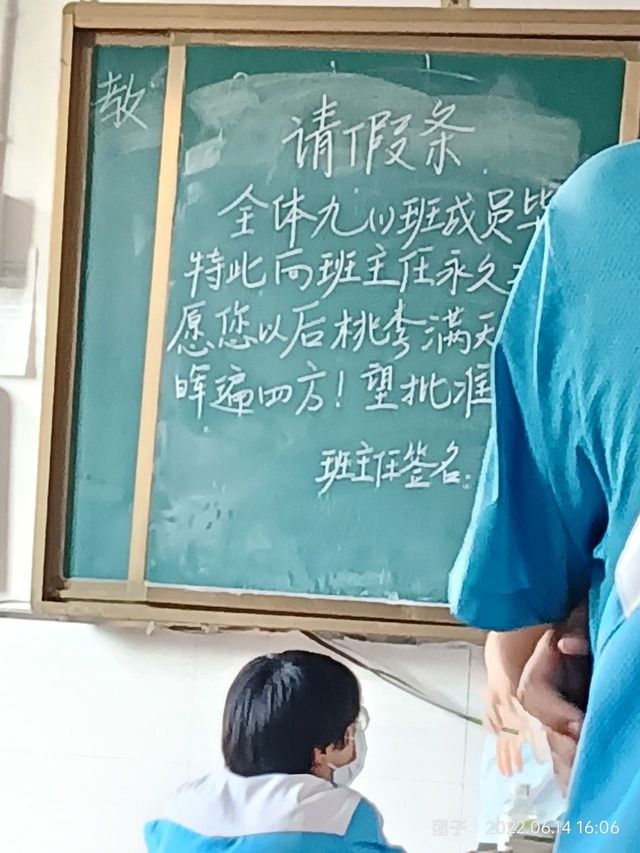 教
请假条
全体九(1)班成员毕
特此向班主任永久
愿您以后桃李满天
晖遍四方！望批准
班主任签名：
团子 2022.06.14 16:06